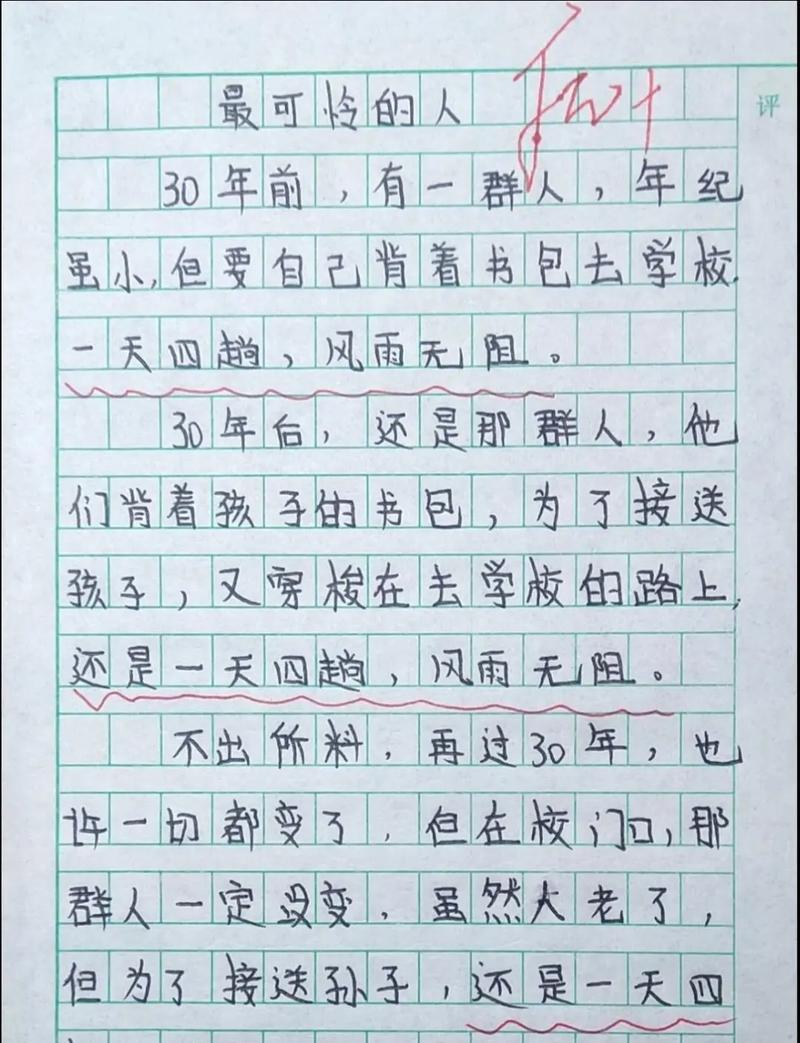 最可怜的人
评
30年前，有一群人，年纪
虽小，但要自己背着书包去学校，
一天四趟，风雨无阻。
30年后，还是那群人，他
们背着孩子的书包，为了接送
孩子，又穿梭在去学校的路上，
还是一天四趟，风雨无阻。
不出所料，再过30年，也
许一切都变了，但在校门口，那
群人一定没变，虽然人老了，
但为了接送孙子，还是一天四